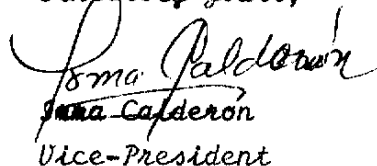 Irma Calderón
Irma Calderón
Vice-President